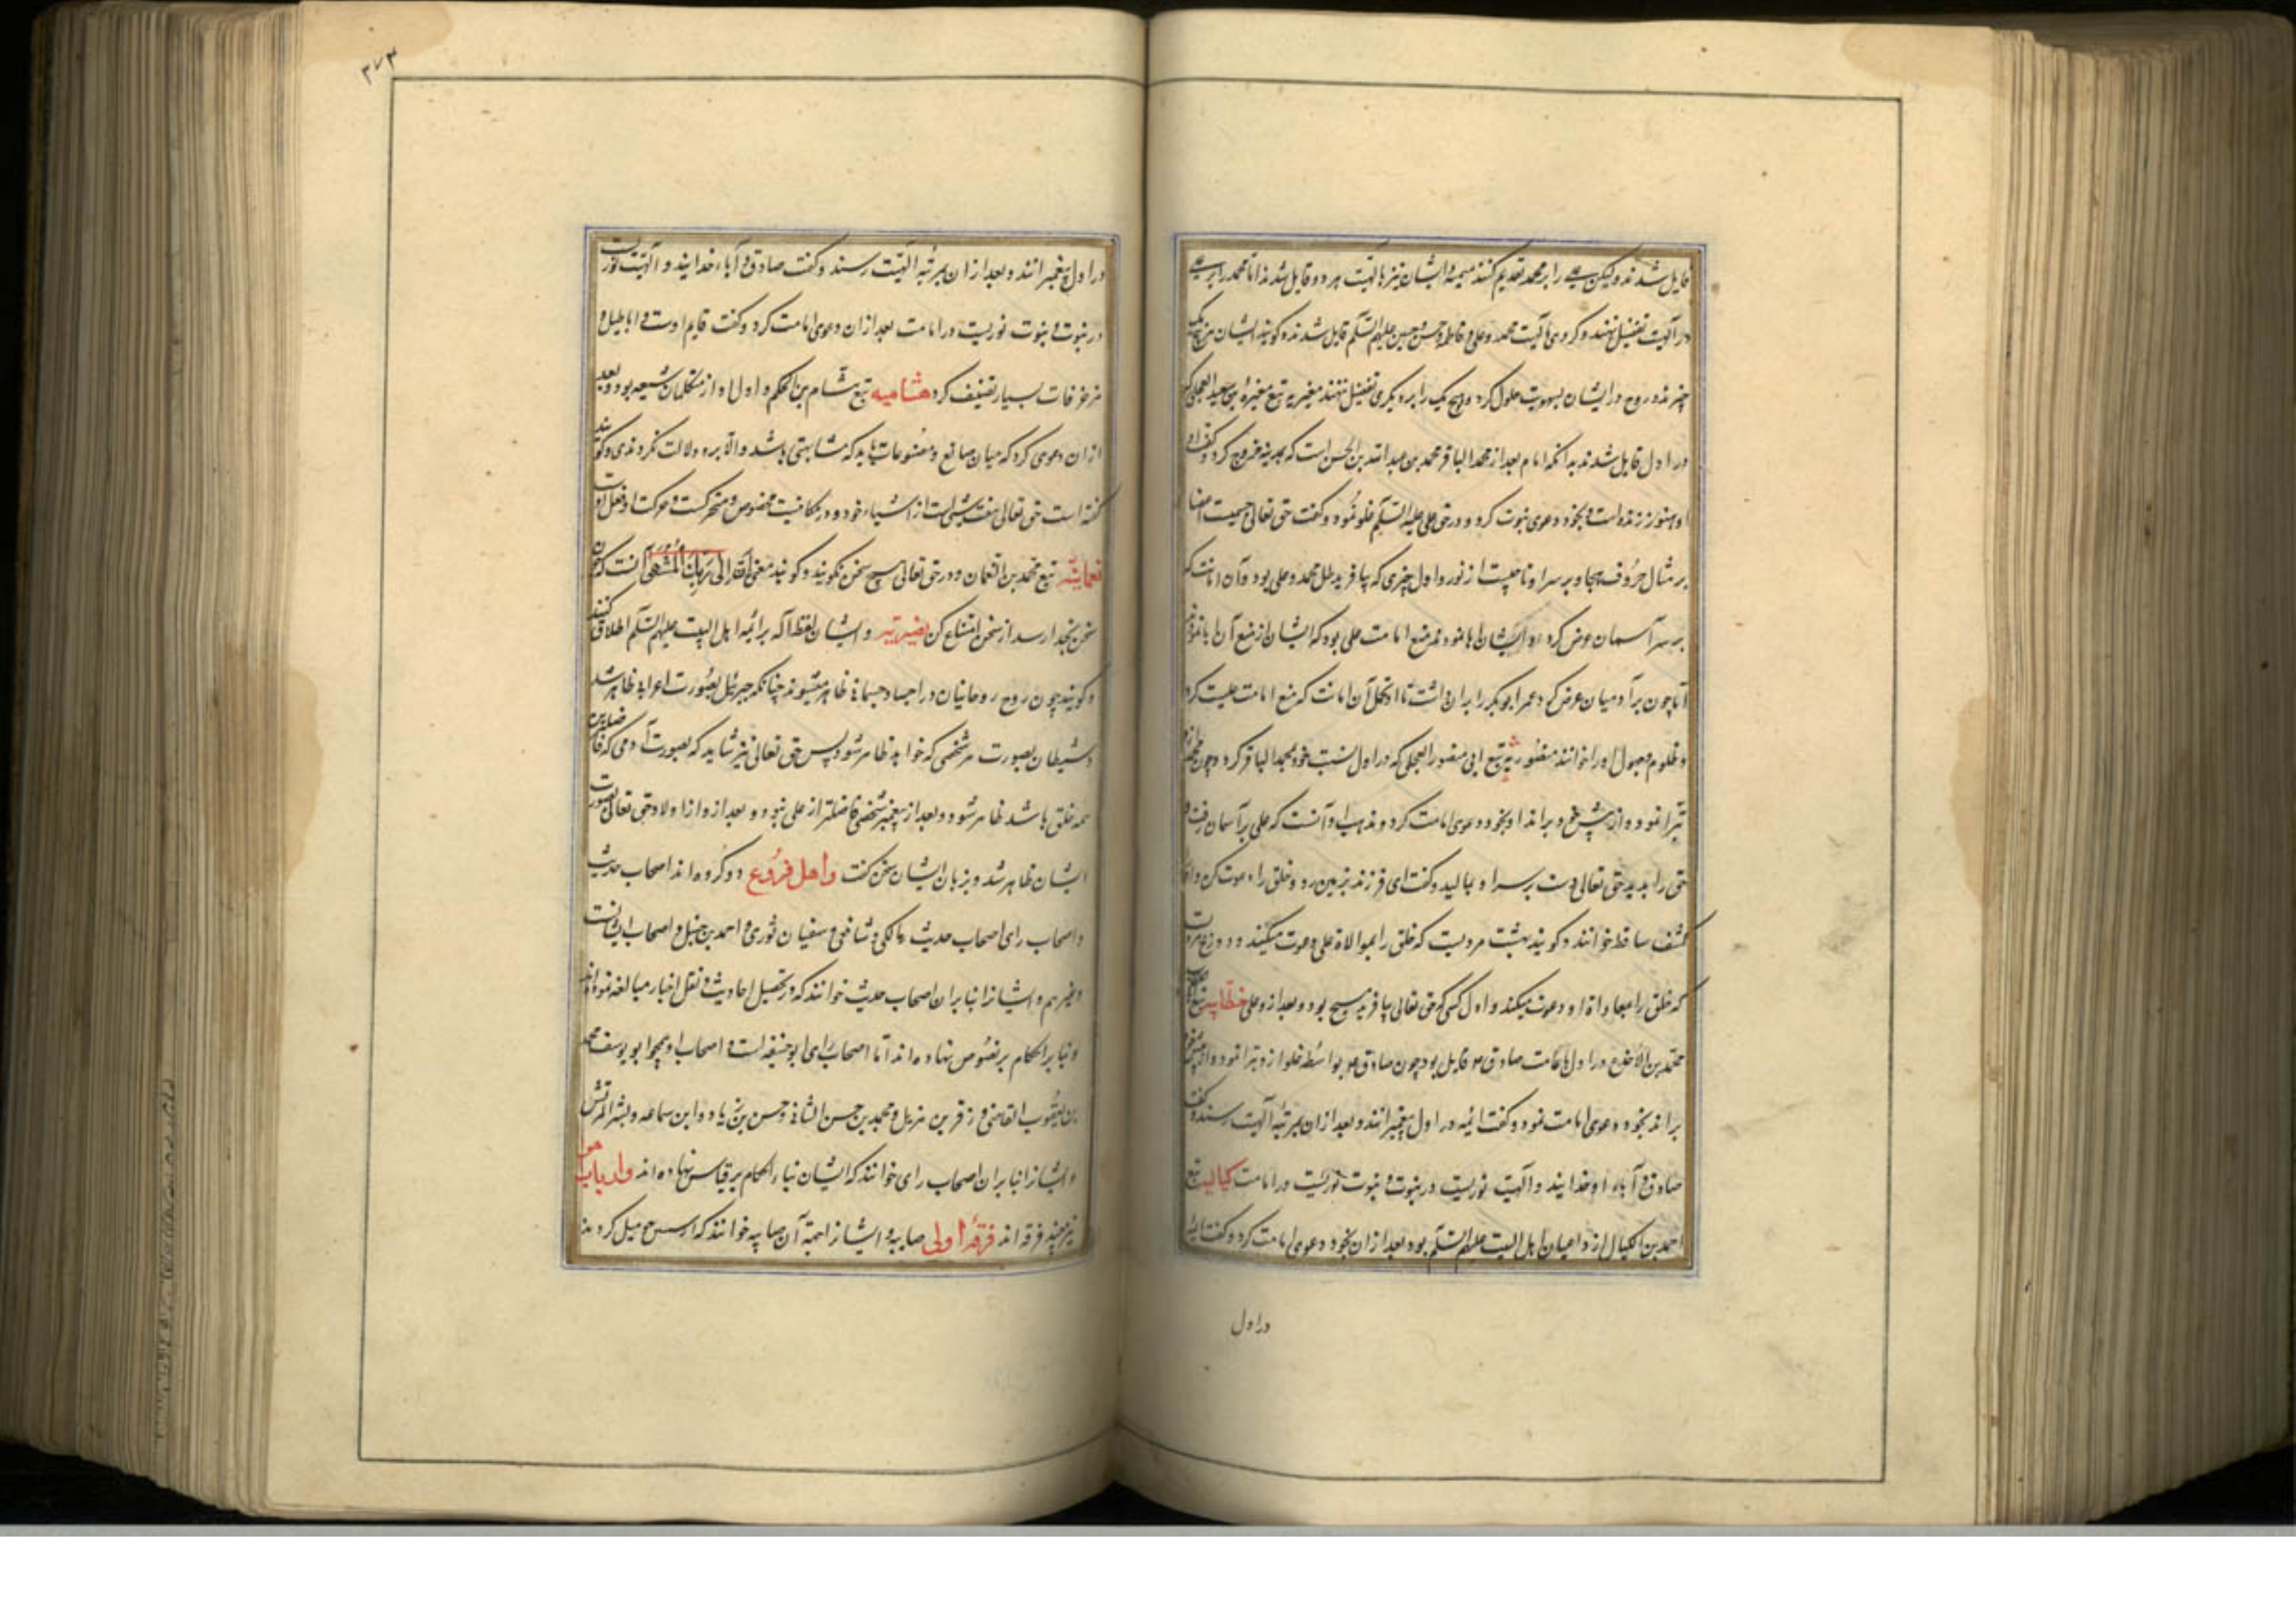 قایل شدند ولیکن علی را بر محمد تقدیم کنند میمیه و ایشان نیز بالهیت هر دو قایل شدند اما محمد را بر علی
در الهیت تفضیل نهند و گروهی بالهیت محمد و علی و فاطمه و حسن و حسین علیهم السلم قایل شدند و گویند ایشان هر پنج یک
چیزند و روح در ایشان بسویت حلول کرد و هیچ یک را بر دیگری تفضیل ننهند مغیریه تبع مغیرة بن سعید العجلی که
در اول قایل شدند بدانکه امام بعد از محمد الباقر محمد بن عبد الله بن الحسن است که بمدینه خروج کرد و گفت او
او هنوز زنده است و بخود دعوی نبوت کرد و در حق علی علیه السلم غلو نمود و گفت حق تعالی جسمیت اعضا
بر مثال حروف هجا و بر سر او تاجیست از نور و اول چیزی که بیافرید ظل محمد و علی بود و آن امانت که
بر سر آسمان عرض کرد و ایشان ابا نمودند منع امامت علی بود که ایشان از منع آن ابا نمودند
اما چون بر آدمیان عرض کرد عمر ابوبکر را بران داشت تا او تحمل آن امانت که منع امامت علیست کرد
و ظلوم و جهول او را خوانند منصوریه تبع ابی منصور العجلی که در اول نسبت خود بمحمد الباقر کرد و چون محمد ازو
تبرا نمود و از پیش خود براند او بخود دعوی امامت کرد و مذهب او آنست که علی بر آسمان رفت و
حق را بدید حق تعالی دست بر سر او بمالید و گفت ای فرزند بزمین رو و خلق را دعوت کن و او را
کسف ساقط خوانند و گویند بهشت مردیست که خلق را بموالاة علی دعوت میکند و دوزخ مردیست
که خلق را بمعاداة او دعوت میکند و اول کسی که حق تعالی بیافرید مسیح بود و بعد ازو علی خطابیه تبع ابی الخطاب
محمد بن الاجدع در اول بامامت صادق قایل بود چون صادق بواسطه غلو ازو تبرا نمود و از پیش خود
براند بخود دعوی امامت نمود و گفت ائمه در اول پیغمبرانند و بعد از ان بمرتبه الهیت رسند و گفت
صادق و آباء او خدایند و الهیت نوریست در نبوت و نبوت نوریست در امامت کیالیه تبع
احمد بن الکیال از داعیان اهل البیت علیهم السلم بود بعد از ان بخود دعوی امامت کرد و گفت ائمه
در اول
٣٧٣
در اول پیغمبرانند و بعد از ان بمرتبه الهیت رسند و گفت صادق و آباء خدایند و الهیت نوریست
در نبوت و نبوت نوریست در امامت بعد از ان دعوی امامت کرد و گفت قایم اوست و اباطیل و
مزخرفات بسیار تصنیف کرد هشامیه تبع هشام بن الحکم و اول او از متکلمان شیعه بود و بعد
از ان دعوی کرد که میان صانع و مصنوعات باید که مشابهتی باشد والا برو دلالت نکردندی و گویند
گفته است حق تعالی هفت شبرست از اشیاء خود و در مکانیست مخصوص و متحرکست و حرکت او فعل اوست
نعمانیه تبع محمد بن النعمان و در حق تعالی هیچ سخن نگویند و گویند معنی ان الی ربک المنتهی آنست که چون
سخن بخدا رسد از سخن امتناع کن نصیریه و ایشان لفظ اله بر ائمه اهل البیت علیهم السلم اطلاق کنند
و گویند چون روح روحانیان در اجساد جسمانی ظاهر میشوند چنانکه جبرئیل بصورت اعرابی ظاهر شد
و شیطان بصورت هر شخصی که خواهد ظاهر شود پس حق تعالی نیز شاید که بصورت آدمی که فاضلترین
همه خلق باشد ظاهر شود و بعد از پیغمبر شخصی فاضلتر از علی نبود و بعد ازو از اولاد حق تعالی بصورت
ایشان ظاهر شد و بزبان ایشان سخن گفت واهل فروع دو گروه اند اصحاب حدیث
و اصحاب رای اصحاب حدیث مالکی و شافعی و سفیان ثوری و احمد بن حنبل و اصحاب ایشانست
و غیرهم و ایشانرا بنابران اصحاب حدیث خوانند که در تحصیل احادیث و نقل اخبار مبالغه نموده اند
و بنا بر احکام بر نصوص نهاده اند اما اصحاب رای ابو حنیفه است و اصحاب او همچو ابو یوسف محمد
بن یعقوب القاضی و زفر بن هزیل و محمد بن حسن الثانی و حسن بن زیاد و ابن سماعه و بشر المریسی
و ایشانرا بنابران اصحاب رای خوانند که ایشان بناء احکام بر قیاس نهاده اند وارباب هوا
نیز چند فرقه اند فرقهٔ اولی صابیه و ایشانرا جهة آن صابیه خوانند که از سنن میل کردند